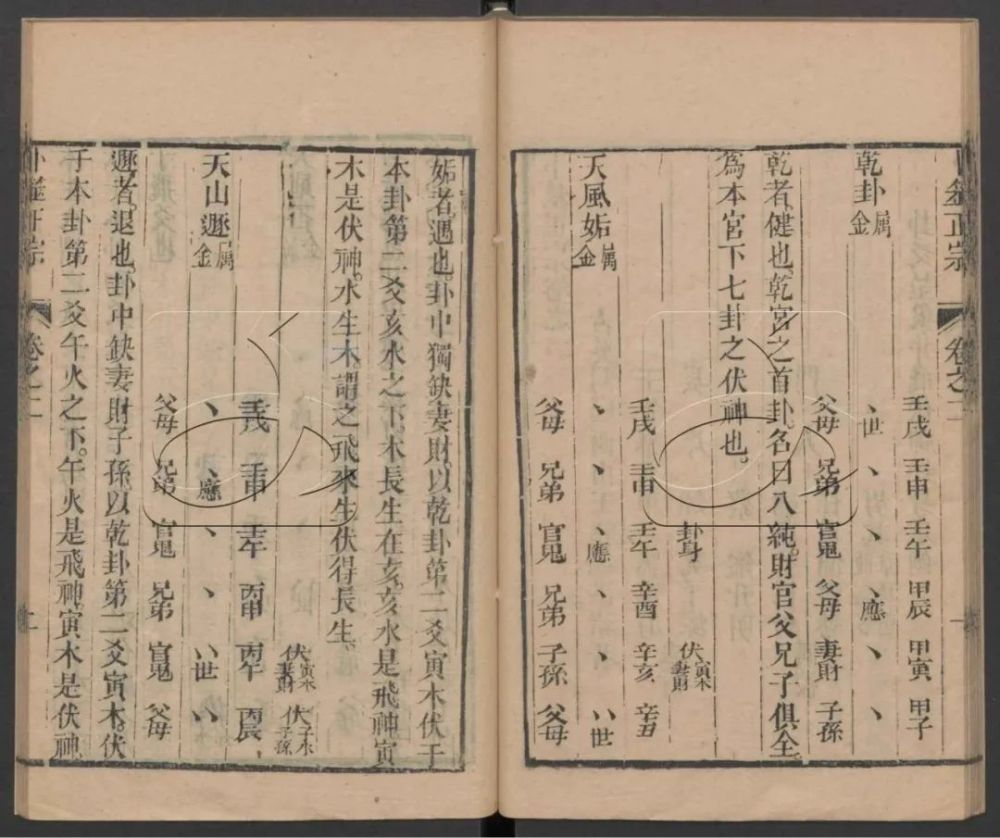 卜筮正宗 卷之二
乾卦 屬金
壬戌 壬申 壬午 甲辰 甲寅 甲子
世 應
父母 兄弟 官鬼 父母 妻財 子孫
乾者健也乾宮之首卦名曰八純財官父兄子俱全
為本宮下七卦之伏神也
天風姤 屬金
卦身 伏寅木妻財
壬戌 壬申 壬午 辛酉 辛亥 辛丑
應 世
父母 兄弟 官鬼 兄弟 子孫 父母
姤者遇也卦中獨缺妻財以乾卦第二爻寅木伏于
本卦第二爻亥水之下木長生在亥亥水是飛神寅
木是伏神水生木謂之飛來生伏得長生
伏寅木妻財 伏子水子孫
壬戌 壬申 壬午 丙申 丙午 丙辰
應 世
天山遯 屬金
父母 兄弟 官鬼 兄弟 官鬼 父母
遯者退也卦中缺妻財子孫以乾卦第二爻寅木伏
于本卦第二爻午火之下午火是飛神寅木是伏神
卜筮正宗 卷之二